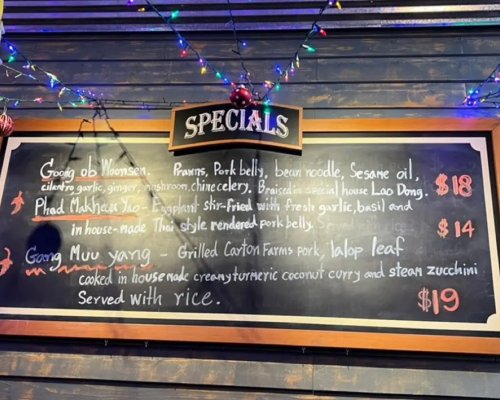 SPECIALS
Goong ob Woonsen. Prawns, Pork belly, bean noodle, Sesame oil,
cilantro garlic, ginger, mushroom, chine celery. Braised in special house Lao Dong. $18
Phad Makheua Yao - Eggplant stir-Fried with fresh garlic, basil and
in house-made Thai style rendered pork belly. $14
Gang Muu yang - Grilled Carton Farms pork, lalop leaf
cooked in house made creamy turmeric coconut curry and steam zucchini
Served with rice. $19